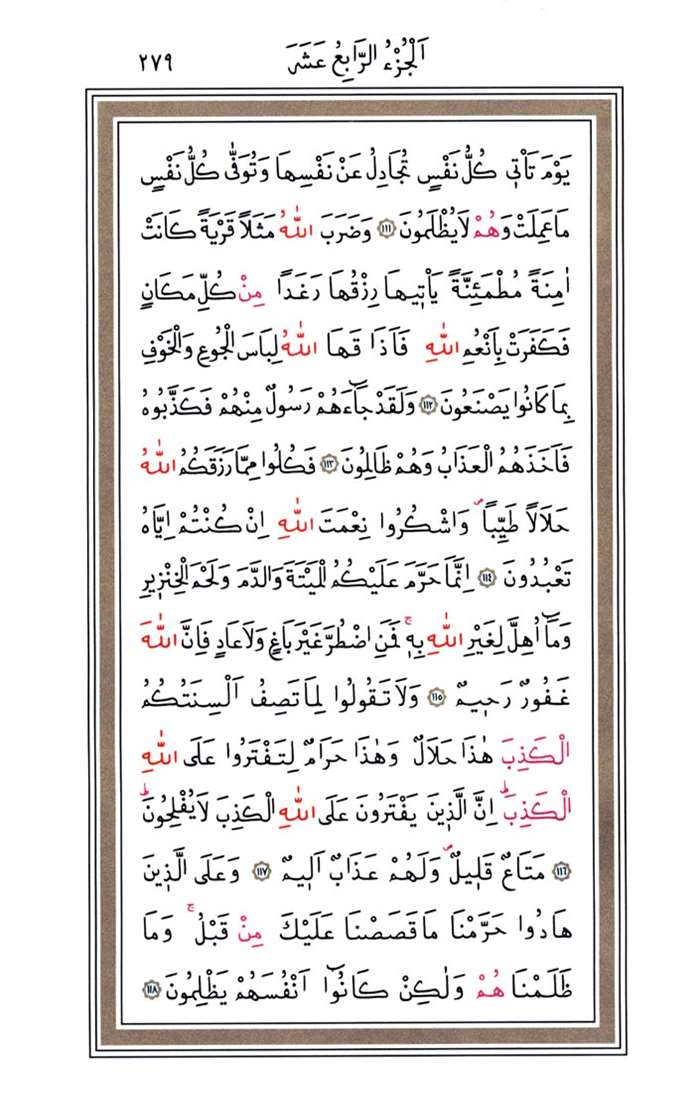 اَلْجُزْءُ الرَّابِعُ عَشَرَ
٢٧٩
يَوْمَ تَأْت۪ي كُلُّ نَفْسٍ تُجَادِلُ عَنْ نَفْسِهَا وَتُوَفّٰى كُلُّ نَفْسٍ
مَا عَمِلَتْ وَهُمْ لَا يُظْلَمُونَ ﴿١١١﴾ وَضَرَبَ اللّٰهُ مَثَلًا قَرْيَةً كَانَتْ
اٰمِنَةً مُطْمَئِنَّةً يَأْت۪يهَا رِزْقُهَا رَغَدًا مِنْ كُلِّ مَكَانٍ
فَكَفَرَتْ بِاَنْعُمِ اللّٰهِ فَاَذَا قَهَا اللّٰهُ لِبَاسَ الْجُوعِ وَالْخَوْفِ
بِمَا كَانُوا يَصْنَعُونَ ﴿١١٢﴾ وَلَقَدْ جَٓاءَهُمْ رَسُولٌ مِنْهُمْ فَكَذَّبُوهُ
فَاَخَذَهُمُ الْعَذَابُ وَهُمْ ظَالِمُونَ ﴿١١٣﴾ فَكُلُوا مِمَّا رَزَقَكُمُ اللّٰهُ
حَلَالًا طَيِّبًاۖ وَاشْكُرُوا نِعْمَتَ اللّٰهِ اِنْ كُنْتُمْ اِيَّاهُ
تَعْبُدُونَ ﴿١١٤﴾ اِنَّمَا حَرَّمَ عَلَيْكُمُ الْمَيْتَةَ وَالدَّمَ وَلَحْمَ الْخِنْز۪يرِ
وَمَٓا اُهِلَّ لِغَيْرِ اللّٰهِ بِه۪ۚ فَمَنِ اضْطُرَّ غَيْرَ بَاغٍ وَلَا عَادٍ فَاِنَّ اللّٰهَ
غَفُورٌ رَح۪يمٌ ﴿١١٥﴾ وَلَا تَقُولُوا لِمَا تَصِفُ اَلْسِنَتُكُمُ
الْكَذِبَ هٰذَا حَلَالٌ وَهٰذَا حَرَامٌ لِتَفْتَرُوا عَلَى اللّٰهِ
الْكَذِبَۜ اِنَّ الَّذ۪ينَ يَفْتَرُونَ عَلَى اللّٰهِ الْكَذِبَ لَا يُفْلِحُونَۜ
﴿١١٦﴾ مَتَاعٌ قَل۪يلٌۖ وَلَهُمْ عَذَابٌ اَل۪يمٌ ﴿١١٧﴾ وَعَلَى الَّذ۪ينَ
هَادُوا حَرَّمْنَا مَا قَصَصْنَا عَلَيْكَ مِنْ قَبْلُۚ وَمَا
ظَلَمْنَا هُمْ وَلٰكِنْ كَانُٓوا اَنْفُسَهُمْ يَظْلِمُونَ ﴿١١٨﴾